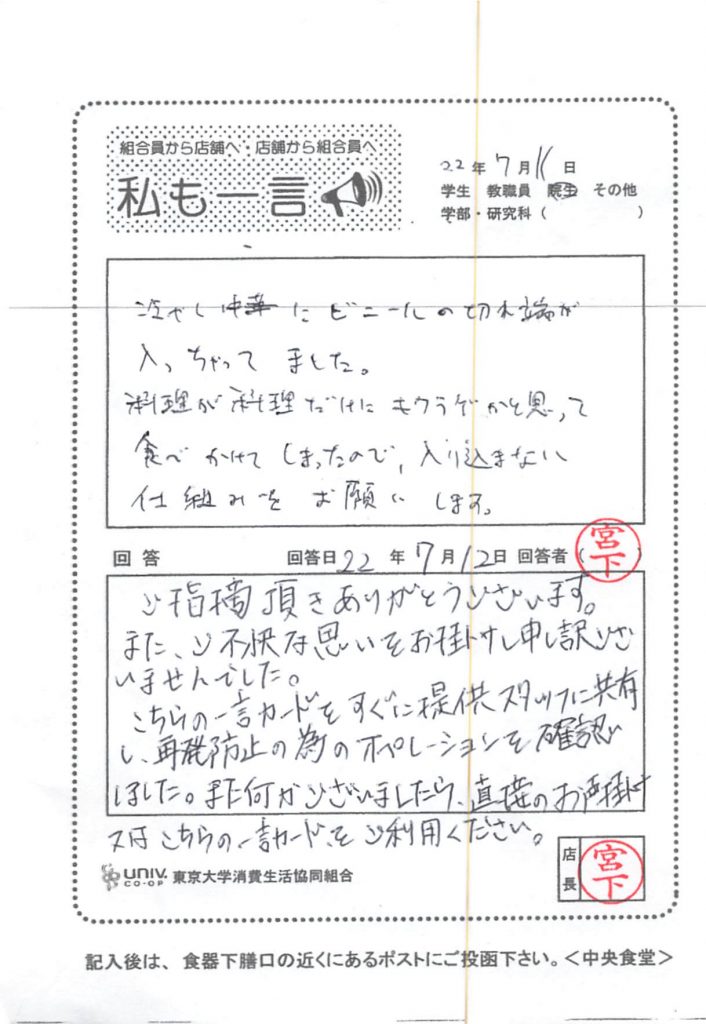 組合員から店舗へ・店舗から組合員へ
私も一言
22年7月11日
学生 教職員 院生 その他
学部・研究科( )
冷やし中華にビニールの切れ端が
入っちゃってました。
料理が料理だけにキクラゲかと思って
食べかけてしまったので、入り込まない
仕組みをお願いします。
回答 回答日22年7月12日 回答者(宮下)
ご指摘頂きありがとうございます。
また、ご不快な思いをお掛けし申し訳ござ
いませんでした。
こちらの一言カードをすぐに提供スタッフに共有
し、再発防止の為のオペレーションを確認
しました。また何かございましたら、直接のお声掛け
又はこちらの一言カードをご利用ください。
UNIV. CO-OP 東京大学消費生活協同組合
店長 宮下
記入後は、食器下膳口の近くにあるポストにご投函下さい。<中央食堂>